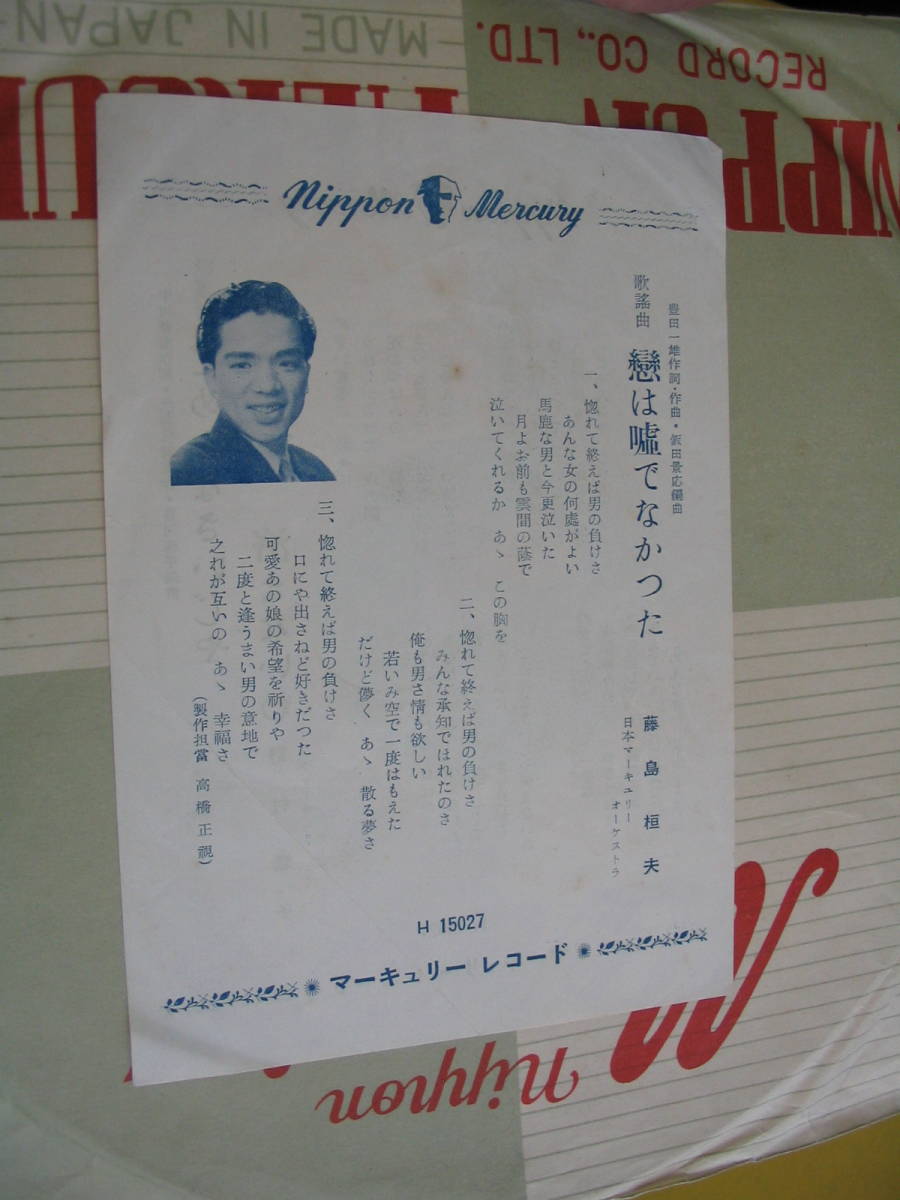 MADE IN JAPAN
RECORD CO., LTD.
Nippon Mercury
豊田一雄作詞・作曲・飯田景応編曲
歌謠曲 戀は嘘でなかつた
藤島桓夫
日本マーキュリー
オーケストラ
一、惚れて終えば男の負けさ
あんな女の何處がよい
馬鹿な男と今更泣いた
月よお前も雲間の蔭で
泣いてくれるか あゝ この胸を
二、惚れて終えば男の負けさ
みんな承知でほれたのさ
俺も男さ情も欲しい
若いみ空で一度はもえた
だけど儚く あゝ 散る夢さ
三、惚れて終えば男の負けさ
口にや出さねど好きだつた
可愛あの娘の希望を祈りや
二度と逢うまい男の意地で
之れが互いの あゝ 幸福さ
(製作担當 高橋正視)
H 15027
マーキュリー レコード
Nippon